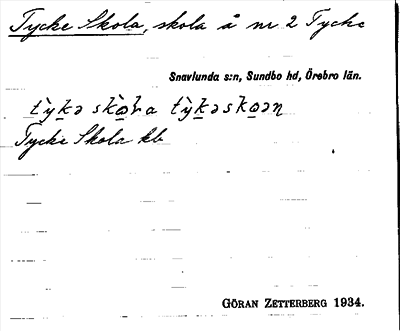 Tycke Skola, skola å nr 2 Tycke
Snavlunda s:n, Sundbo hd, Örebro län.
Tycke Skola kb
GÖRAN ZETTERBERG 1934.